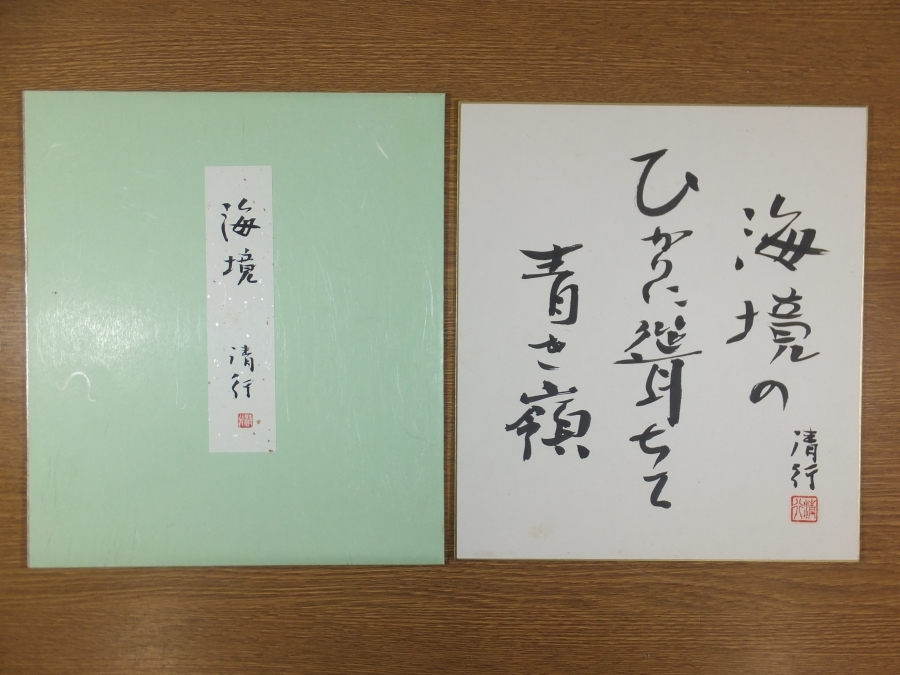 海境
清行
海境の
ひかりに聳ちて
青き嶺
清行